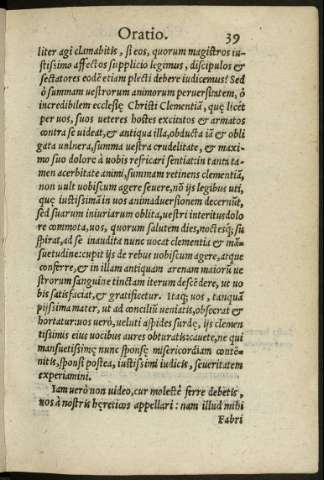 Oratio. 39
liter agi clamabitis, si eos, quorum magistros iu-
stissimo affectos supplicio legimus, discipulos &
sectatores eodē etiam plecti debere iudicemus! Sed
ô summam uestrorum animorum peruersitatem, ô
incredibilem ecclesiȩ Christi Clementiā, quȩ licèt
per uos, suos ueteres hostes excitatos & armatos
contra se uideat, & antiqua illa, obducta iā & obli
gata uulnera, summa uestra crudelitate, & maxi-
mo suo dolore à uobis refricari sentiat: in tanta ta-
men acerbitate animi, summam retinens clementiā,
non uult uobiscum agere seuere, nō ijs legibus uti,
quȩ iustissimā in uos animaduersionem decernūt,
sed suarum iniuriarum oblita, uestri interitus dolo
re commota, uos, quorum salutem dies, noctesq; su
spirat, ad se inaudita nunc uocat clementia & mā
suetudine: cupit ijs de rebus uobiscum agere, atque
conferre, & in illam antiquam arenam maiorū ue
strorum sanguine tinctam iterum descēdere, ut uo
bis satisfaciat, & gratificetur. Itaq; uos, tanquā
pijssima mater, ut ad conciliū ueniatis, obsecrat &
hortatur: uos uerò, ueluti aspides surdȩ, ijs clemen
tissimis eius uocibus aures obturatis: cauete, ne qui
mansuetissimȩ nunc sponsȩ misericordiam contē-
nitis, sponsi postea, iustissimi iudicis, seueritatem
experiamini.
Iam uerò non uideo, cur molestè ferre debetis,
uos à nostris hȩreticos appellari: nam illud mihi
Fabri